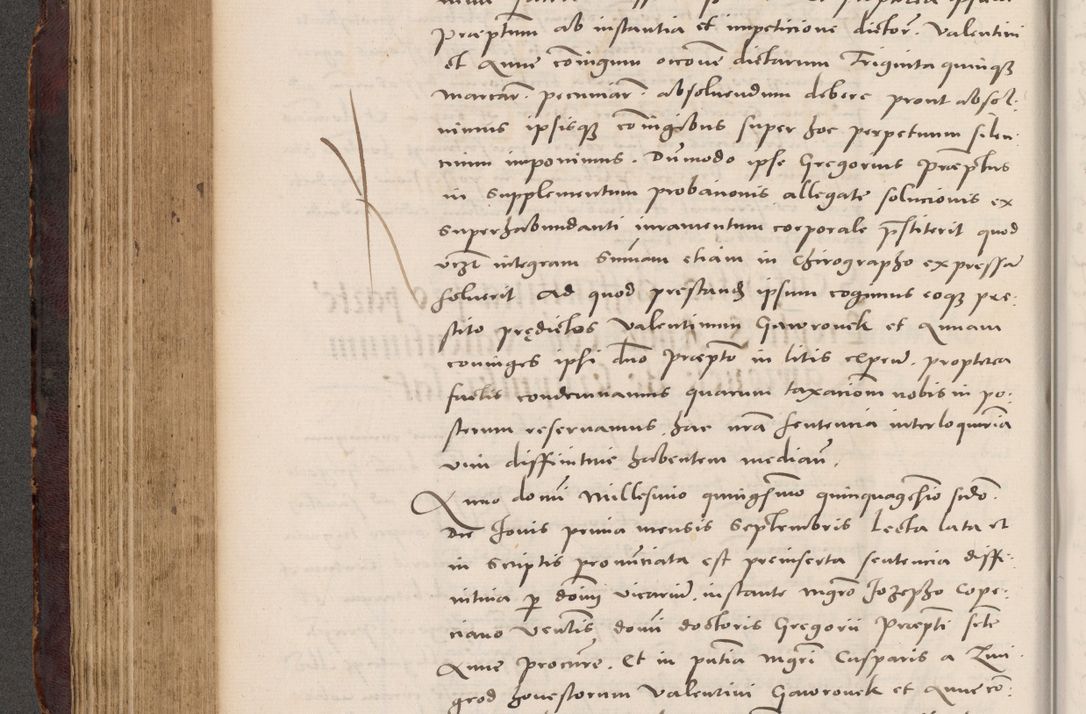 Præptum ab instantia et impeticione dictor. Valentini
et Anne coniugum occone dictarum Triginta quinqȝ
marcar. pecuniar. absoluendum debere prout absol:
uimus ipsisqȝ coniugibus super hoc perpetuum silen
cium imponimus. Dummodo ipse Gregorius Præptus
in supplementum probationis allegate solucionis ex
superhabundanti iuramentum corporale præstiterit quod
vizt integram summam etiam in Chirographo expressam
soluerit Ad quod prestand ipsum cogimus eoqȝ pre:
stito prędictos Valentinum Gawronek et Annam
coniuges ipsi dno Præpto in litis expens. propterea
factis condemnamus quarum taxacionem nobis in po:
sterum reseruamus, hac nra sentencia interloqutoria
vim diffinitiue habentem median.
Anno domi Millesimo quingesimo quinquagesio sedo.
Die Jouis prima mensis Septembris Lecta lata et
in scriptis pronunciata est preinserta sentencia diffi:
nitiua p domi vicarium, instante mgro Jozepho Cope:
ciano Venlis domi doctoris Gregorii Præpti Scte
Anne procure. Et in pntia mgri Casparis a Zwi
grod honestorum Valentini Gawronek et Anne co: